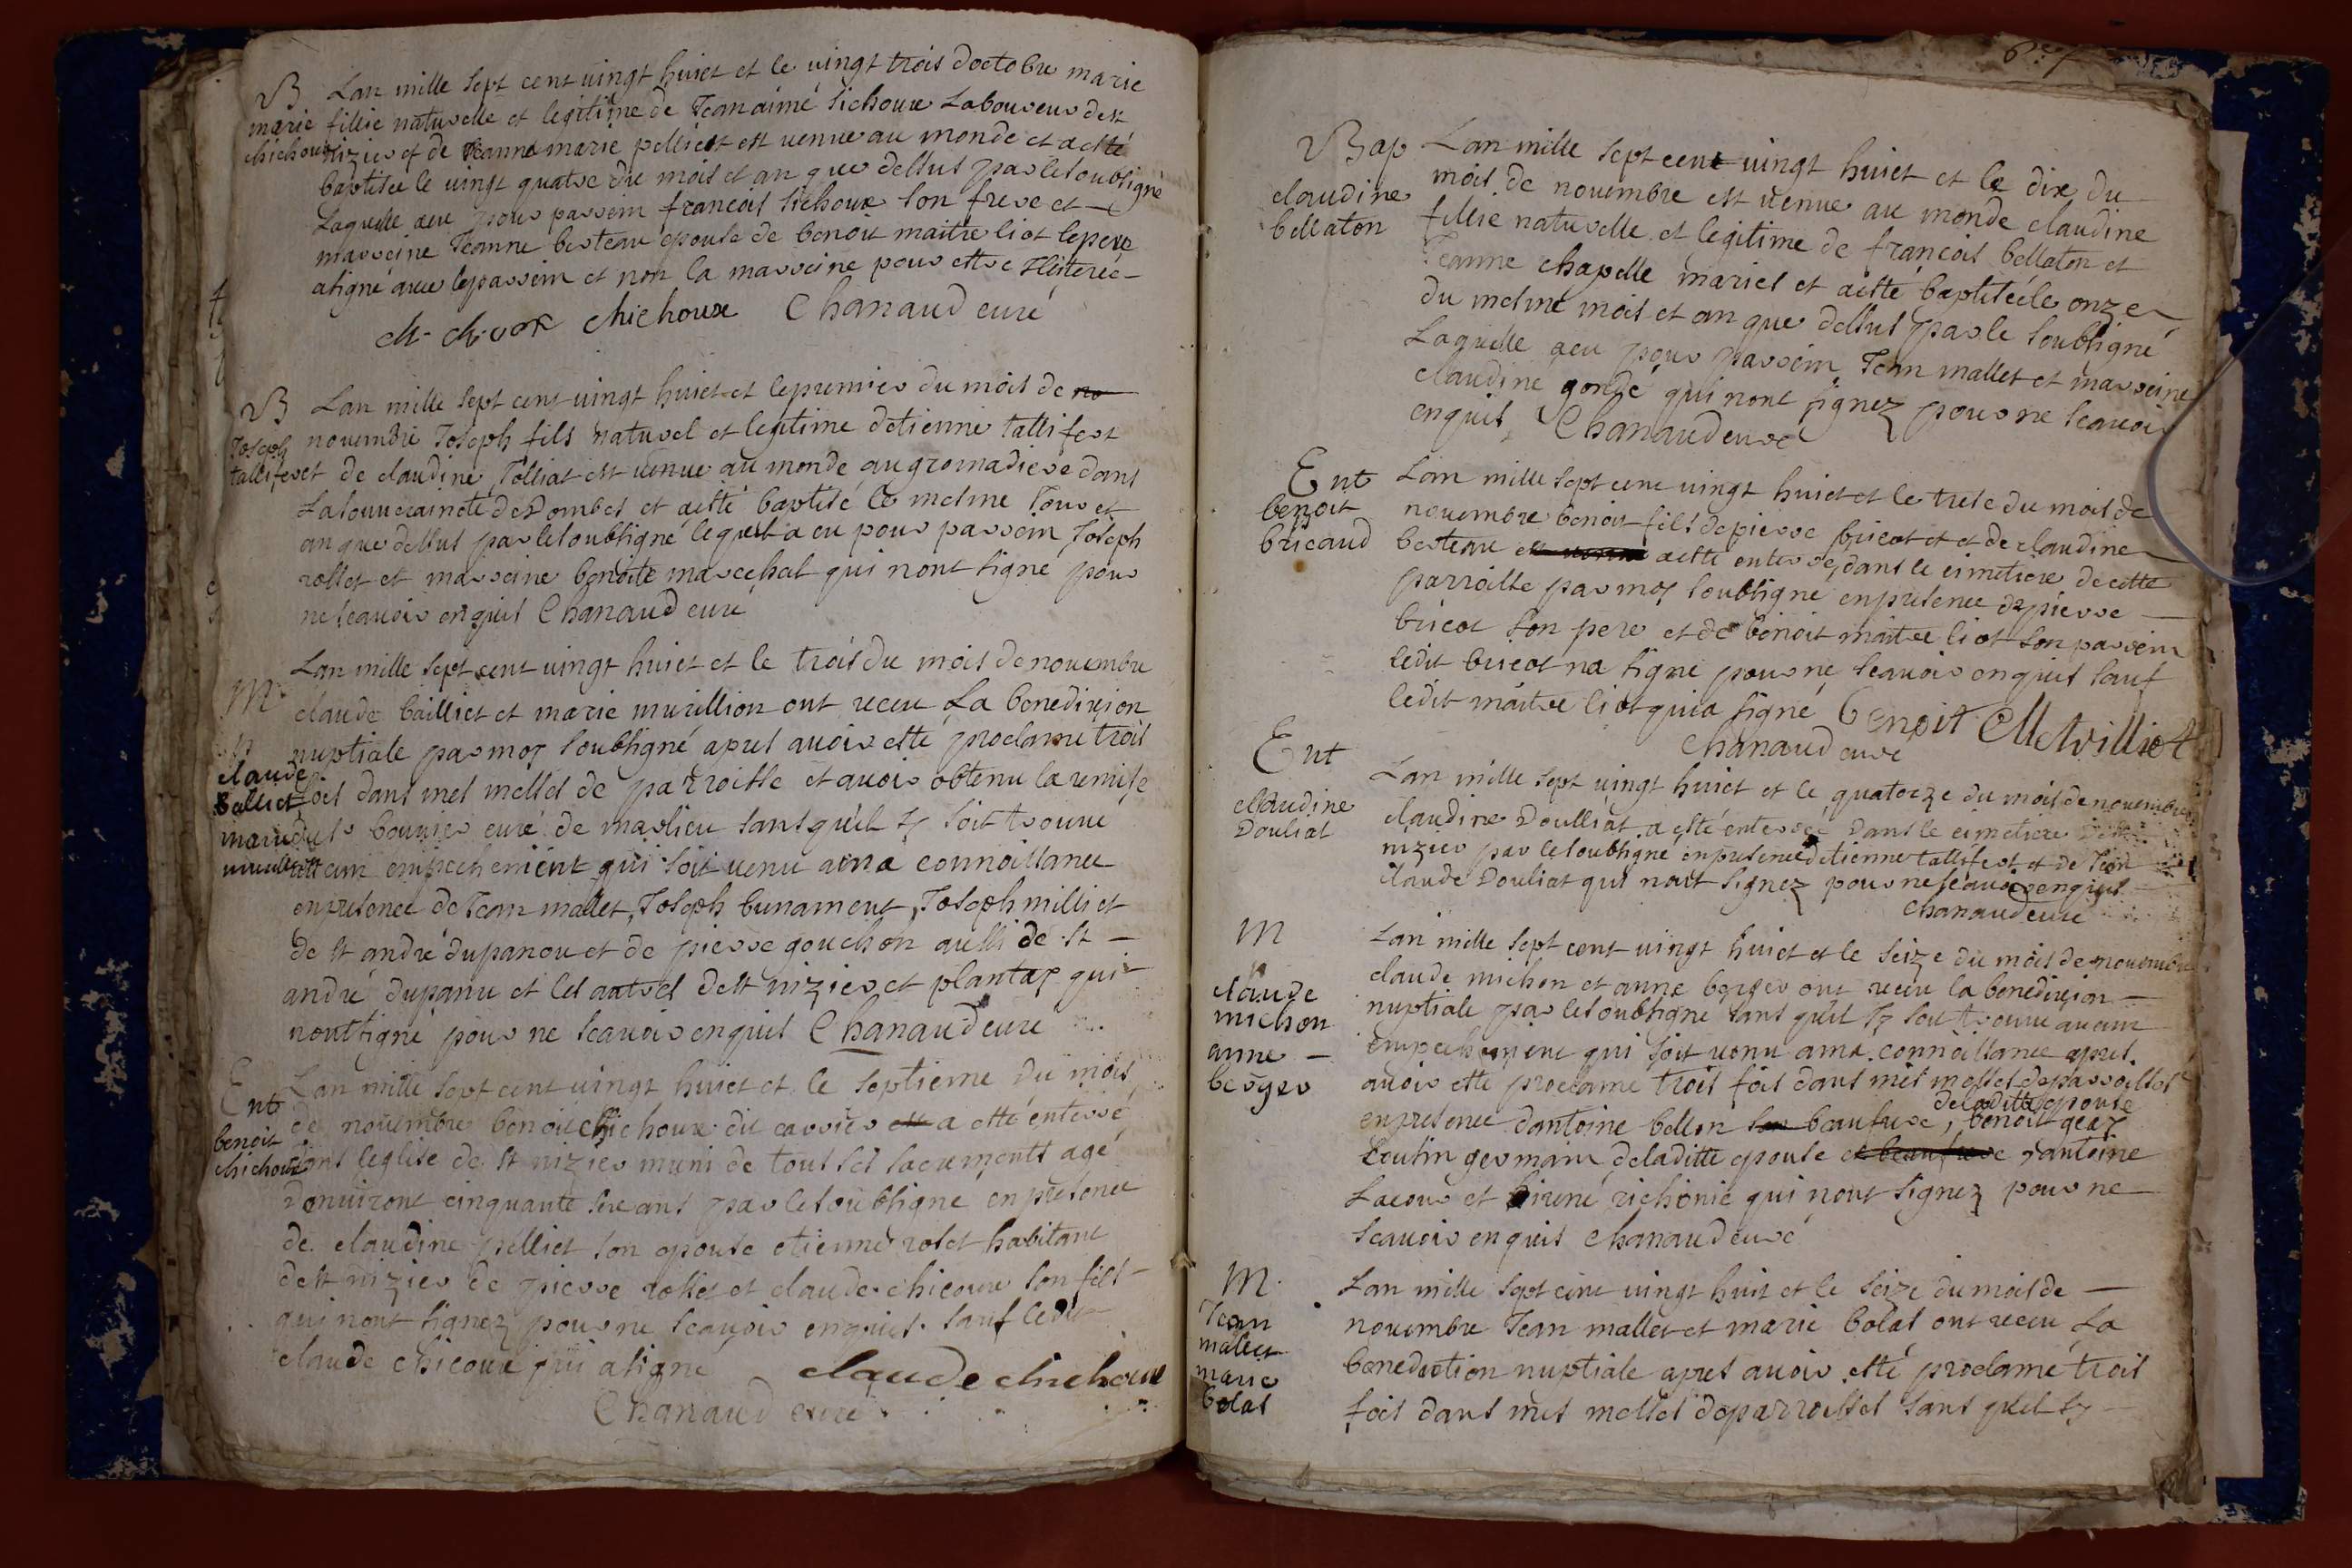 B
marie
chichoux
Lan mille sept cent vingt huict et le vingt trois doctobre marie
fillie naturelle et legitime de Jean aimé sichoux Laboureur de st
nizier et de Jeanne marie pelliest est venue au monde et aesté
baptisée le vingt quatre du mois et an que dessus par le soubsigné
Laquelle aeu pour parrein francois sichoux son frere et
marreine Jeanne berteau epouse de benoit maitre liot le pere
asigné avec le parrein et non la marreine pour estre Illiterée
chichoux Chanaud curé
B
Joseph
tallifert
Lan mille sept cent vingt huict et le premier du mois de no
novembre Joseph fils naturel et legitime detienne tallifert
et de claudine Tolliat est venue au monde au gromadiere dans
La souveraineté de Dombes et aesté baptisé le mesme Jour et
an que dessus par le soubsigné lequel a eu pour parrein Joseph
rollet et marreine benoite marechal qui nont signé pour
ne scavoir enquis Chanaud curé
M
claude
balliet
marie
murillion
Lan mille sept cent vingt huict et le trois du mois de novembre
claude bailliet et marie murillion ont receu La benediction
nuptiale par moy soubsigné apres avoir esté proclame trois
fois dans mes messes de parroisse et avoir obtenu la remise
du sr bouvier curé de marlieu sans quil sy soit trouvé
aucun empechement qui soit venu a ma connoissance
en presence de Jean mallet, Joseph bunament, Joseph milliet
de st andré dupanou et de pierre gouchon aussi de st
andré dupanu et les autres de st nizier et plantay qui
nont signé pour ne scavoir enquis Chanaud curé
Ent
benoit
chichoux
Lan mille sept cent vingt huict et le septieme du mois
de novembre benoit chichoux dit carrier est a esté enterré
dans leglise de st nizier muni de tous ses sacrements agé
denviront cinquante six ans par le soubsigné en presence
de claudine pelliet son epouse etienne rolet habitant
de st nizier de pierre rollet et claude chicoux son fils
qui nont signez pour ne scavoir enquis sauf ledit
claude chicoux qui a signé claude chichoux
Chanaud curé
Bap
claudine
bellaton
Lan mille sept cent vingt huict et le dix du
mois de novembre est venue au monde claudine
fillie naturelle et legitime de francois bellaton et
Jeanne chapelle mariés et aesté baptisée le onze
du mesme mois et an que dessus par le soubsigné
Laquelle aeu pour parrein Jean mallet et marreine
claudine gondé qui nont signez pour ne scavoir
enquis Chanaud curé
Ent
benoit
bricaud
Lan mille sept cent vingt huict et le trese du mois de
novembre benoit fils de pierre bricot et et de claudine
berteau aesté enterré dans le cimetiere de cette
parroisse par moy soubsigné en presence de pierre
bricot son pere et de benoit maitre liot son parrein
ledit bricot na signé pour ne scavoir enquis sauf
ledit maitre liot qui a signé benoit Metrilliot
Chanaud curé
Ent
claudine
Douliat
Lan mille sept vingt huict et le quatorze du mois de novembre
claudine Doulliat a esté enterrée dans le cimetiere de st
nizier par le soubsigné en presence detienne tallifert et de Jean
claude Douliat qui nont signez pour ne scavoir enquis
Chanaud curé
M
claude
michon
anne
berger
Lan mille sept cent vingt huict et le seize du mois de novembre
claude michon et anne berger ont receu la benediction
nuptiale par le soubsigné sans quil sy soit trouvé aucun
empechement qui soit venu a ma connoissance apres
avoir esté proclamé trois fois dans mes messes de parroisses
de ladite epouse
en presence dantoine bellon son beaufrere, benoit geay
Cousin germain deladitte epouse et beaufrere, antoine
Lacour et richonié qui nont signez pour ne
scavoir enquis Chanaud curé
M
Jean
mallet
marie
bolas
Lan mille sept cent vingt huit et le seize du mois de
novembre Jean mallet et marie bolas ont receu La
benediction nuptiale apres avoir esté proclamé trois
fois dans mes messes de parroisses sans quil sy